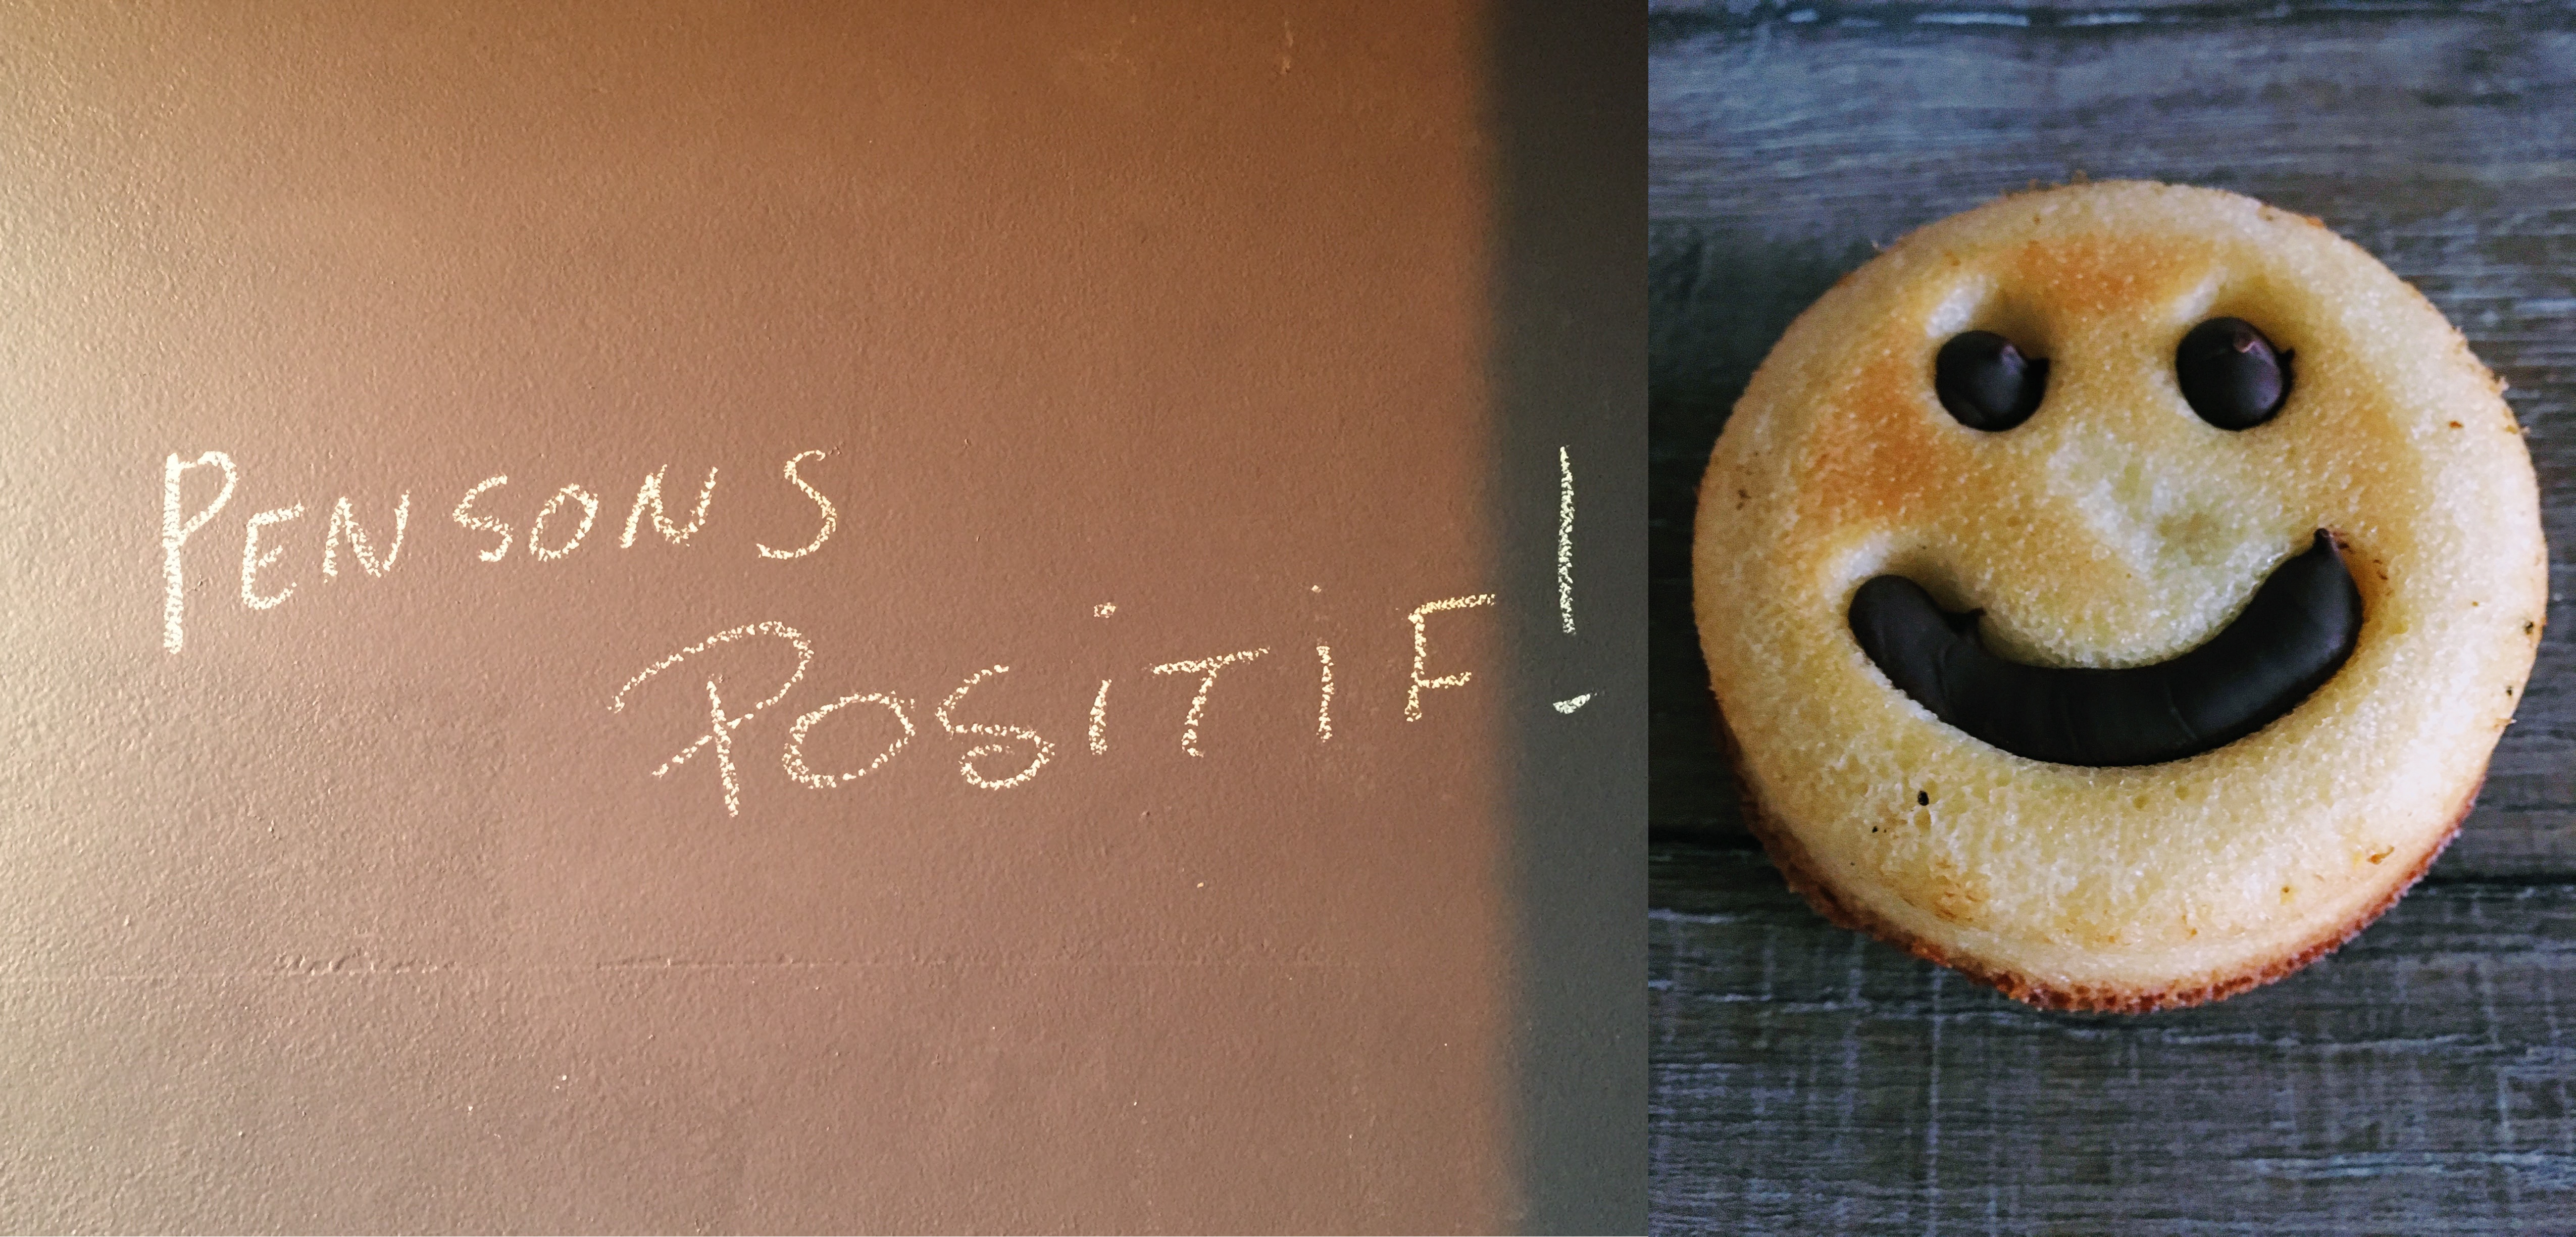 PENSONS
POSiTiF!